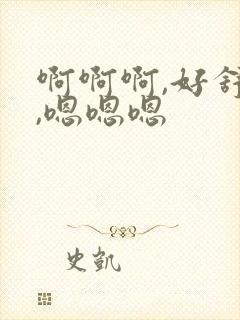 啊啊啊,好舒
,嗯嗯嗯
史凯